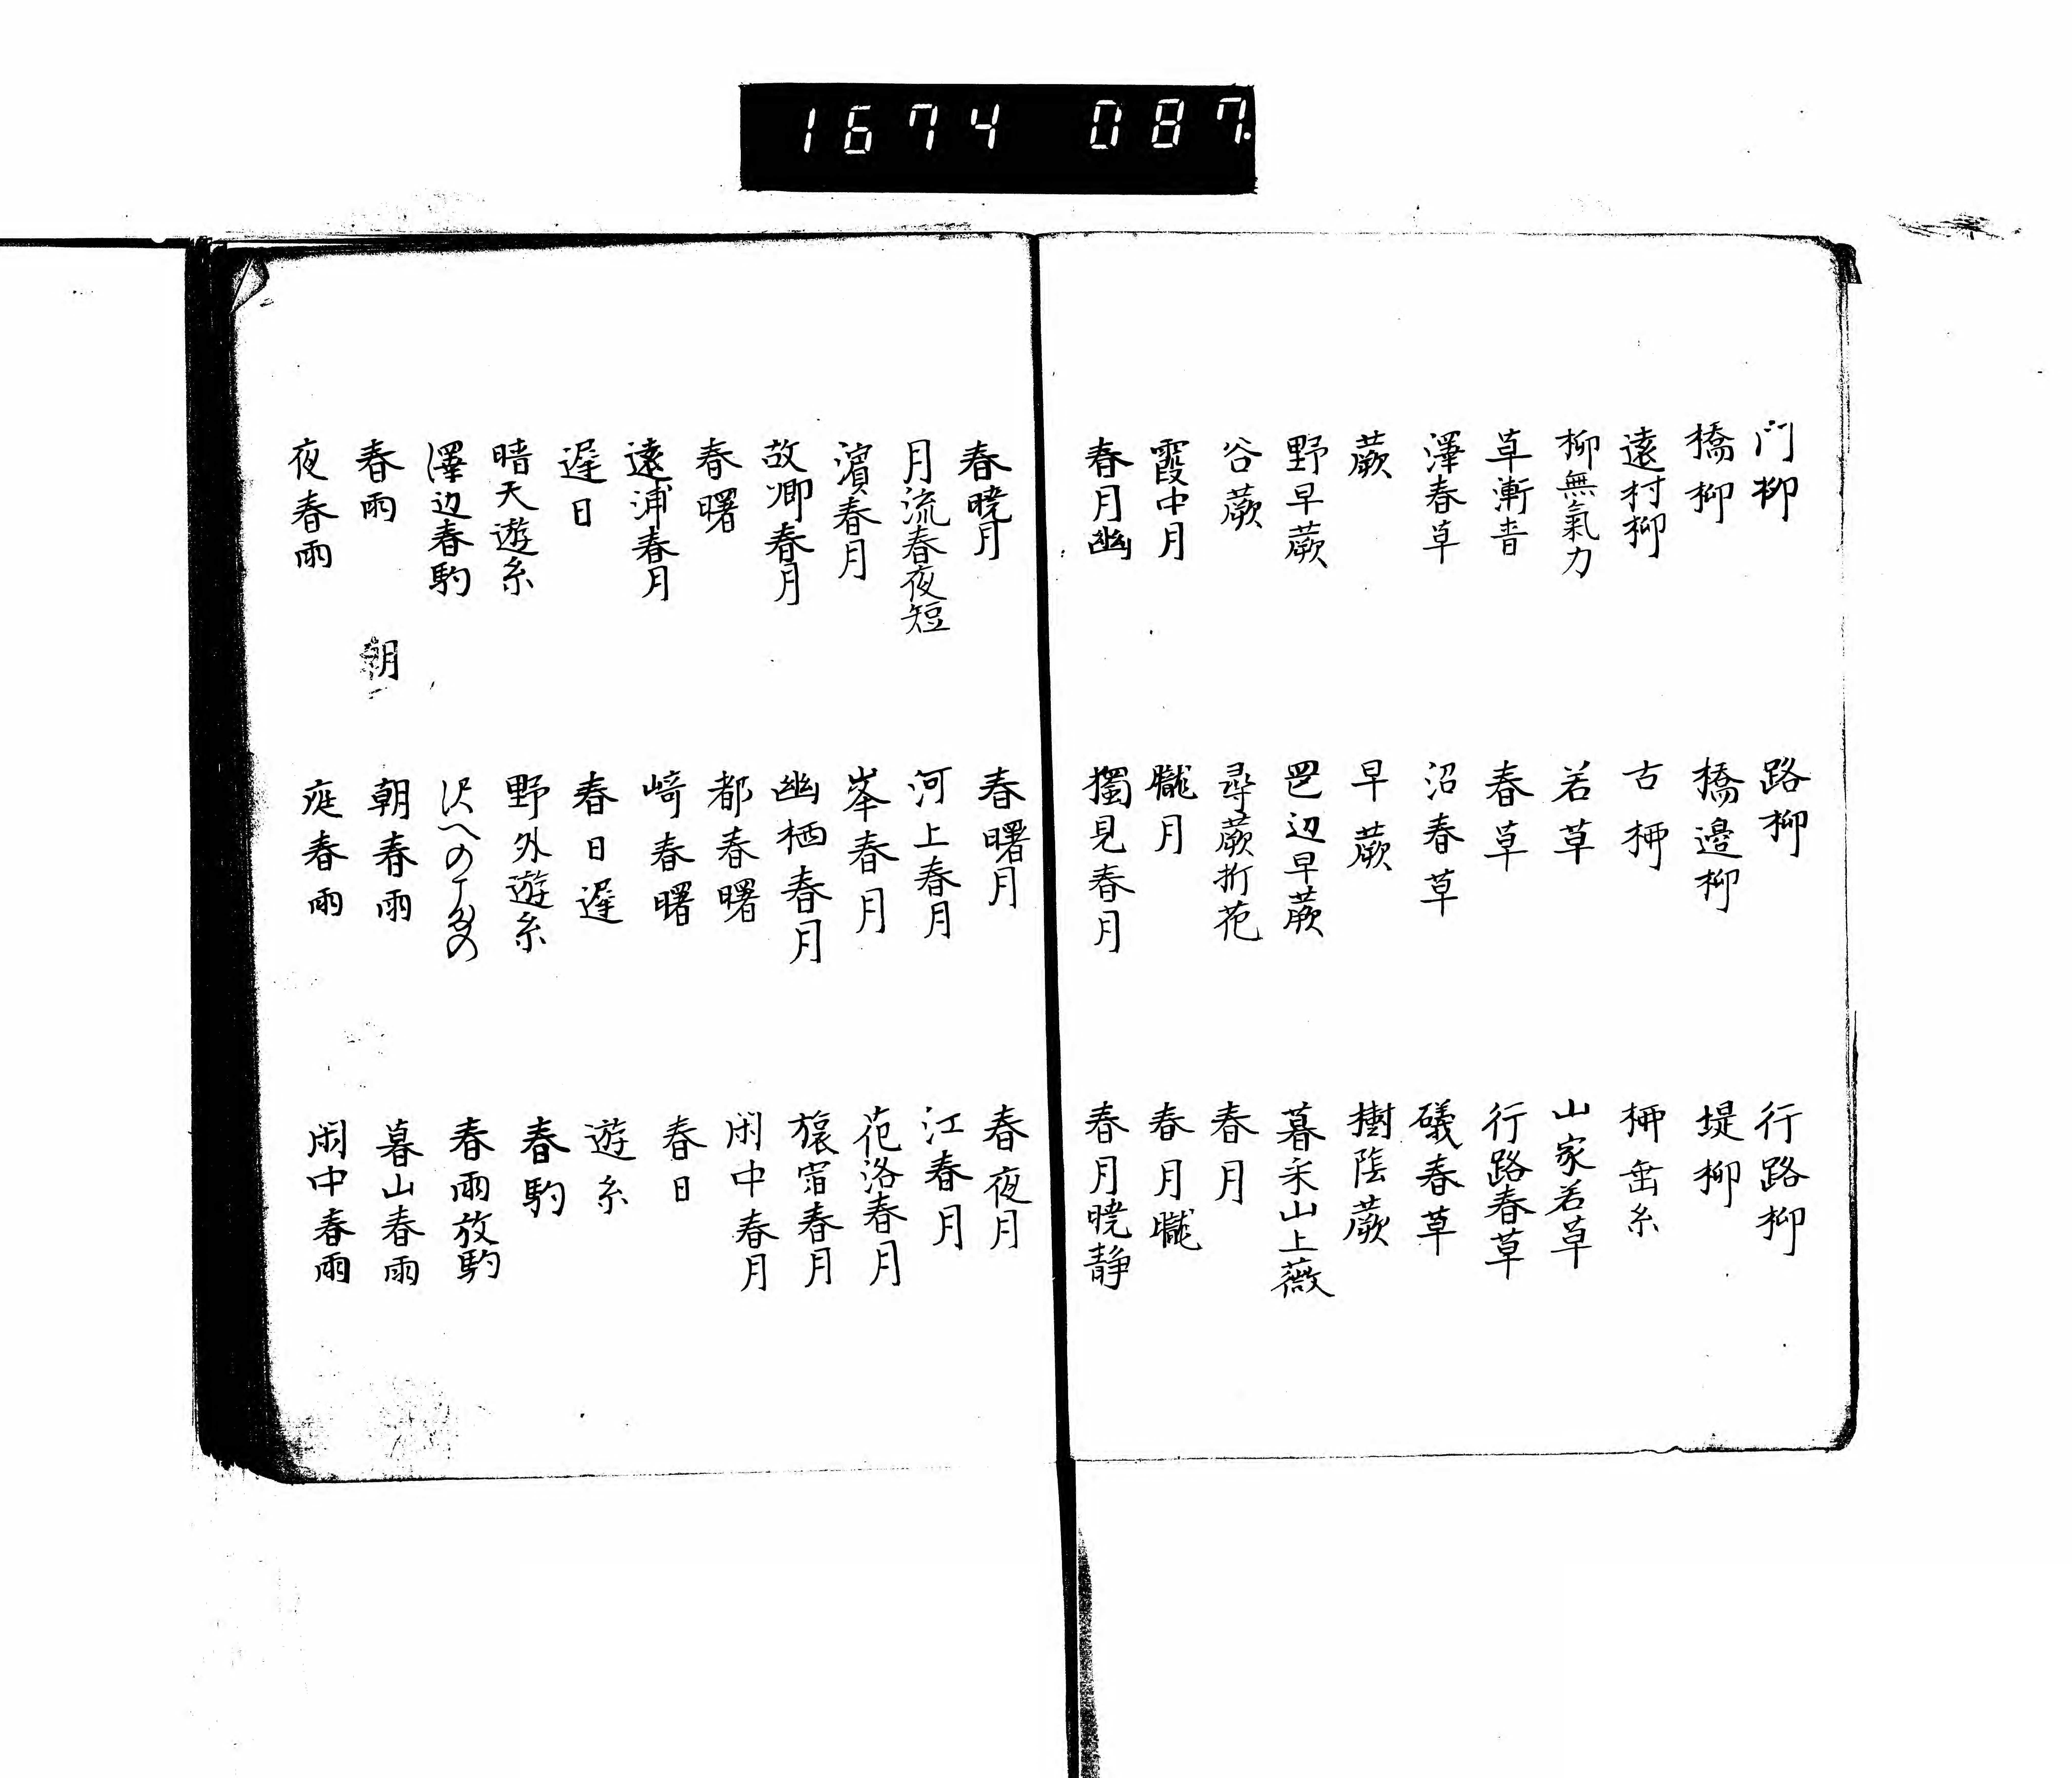 門柳 路柳 行路柳
橋柳 橋邊柳 堤柳
遠村柳 古柳 柳垂糸
柳無氣力 若草 山家若草
草漸青 春草 行路春草
澤春草 沼春草 礒春草
蕨 早蕨 樹陰蕨
野早蕨 辺早蕨 暮采山上薇
谷蕨 尋蕨折花 春月
霞中月 朧月 春月朧
春月幽 獨見春月 春月暁静
春暁月 春曙月 春夜月
月流春夜短 河上春月 江春月
濱春月 峯春月 花洛春月
故郷春月 幽栖春月 旅宿春月
春曙 都春曙 閑中春月
遠浦春月 崎春曙 春日
遅日 春日遅 遊糸
暗天遊糸 野外遊糸 春駒
澤辺春駒 沢への 春雨放駒
春雨 朝 朝春雨 暮山春雨
夜春雨 庭春雨 閑中春雨
1674 087